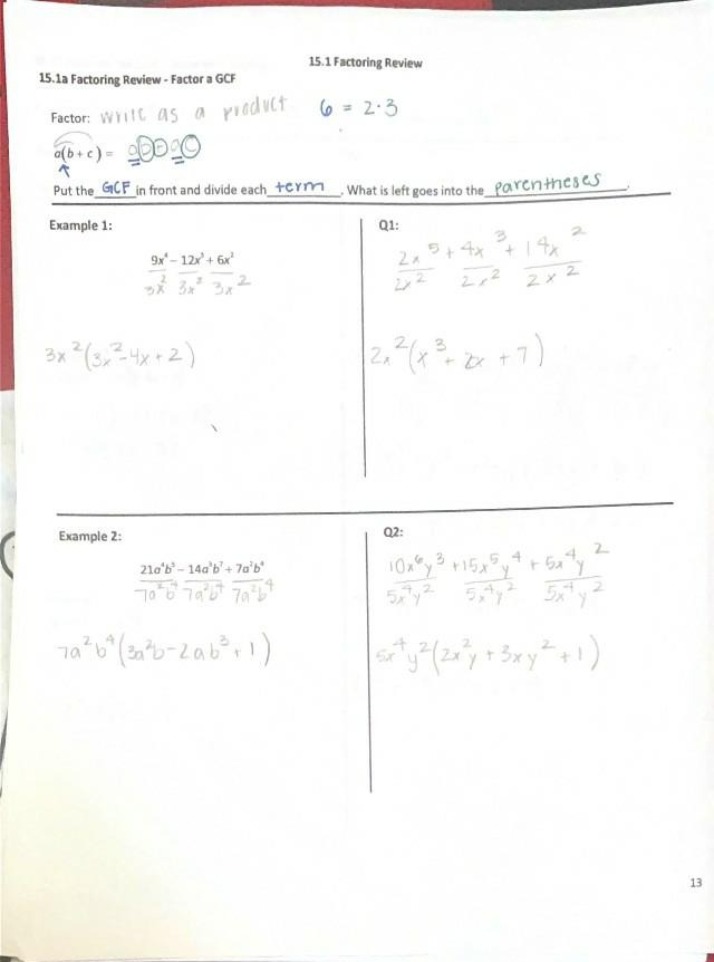 15.1 Factoring Review
15.1a Factoring Review - Factor a GCF
Factor: write as a product 6 = 2·3
a(b + c) = ab + ac
Put the GCF in front and divide each term. What is left goes into the parentheses.
Example 1:
9x⁴ – 12x³ + 6x²
3x² 3x² 3x²
3x²(3x²-4x+2)
Q1:
2x⁵ + 4x³ + 14x²
2x² 2x² 2x²
2x²(x³ + 2x + 7)
Example 2:
21a⁴b⁵ – 14a³b⁷ + 7a²b⁴
7a²b⁴ 7a²b⁴ 7a²b⁴
7a²b⁴(3a²b-2ab³+1)
Q2:
10x⁶y³ + 15x⁵y⁴ + 5x⁴y²
5x⁴y² 5x⁴y² 5x⁴y²
5x⁴y²(2x²y + 3xy² + 1)
13